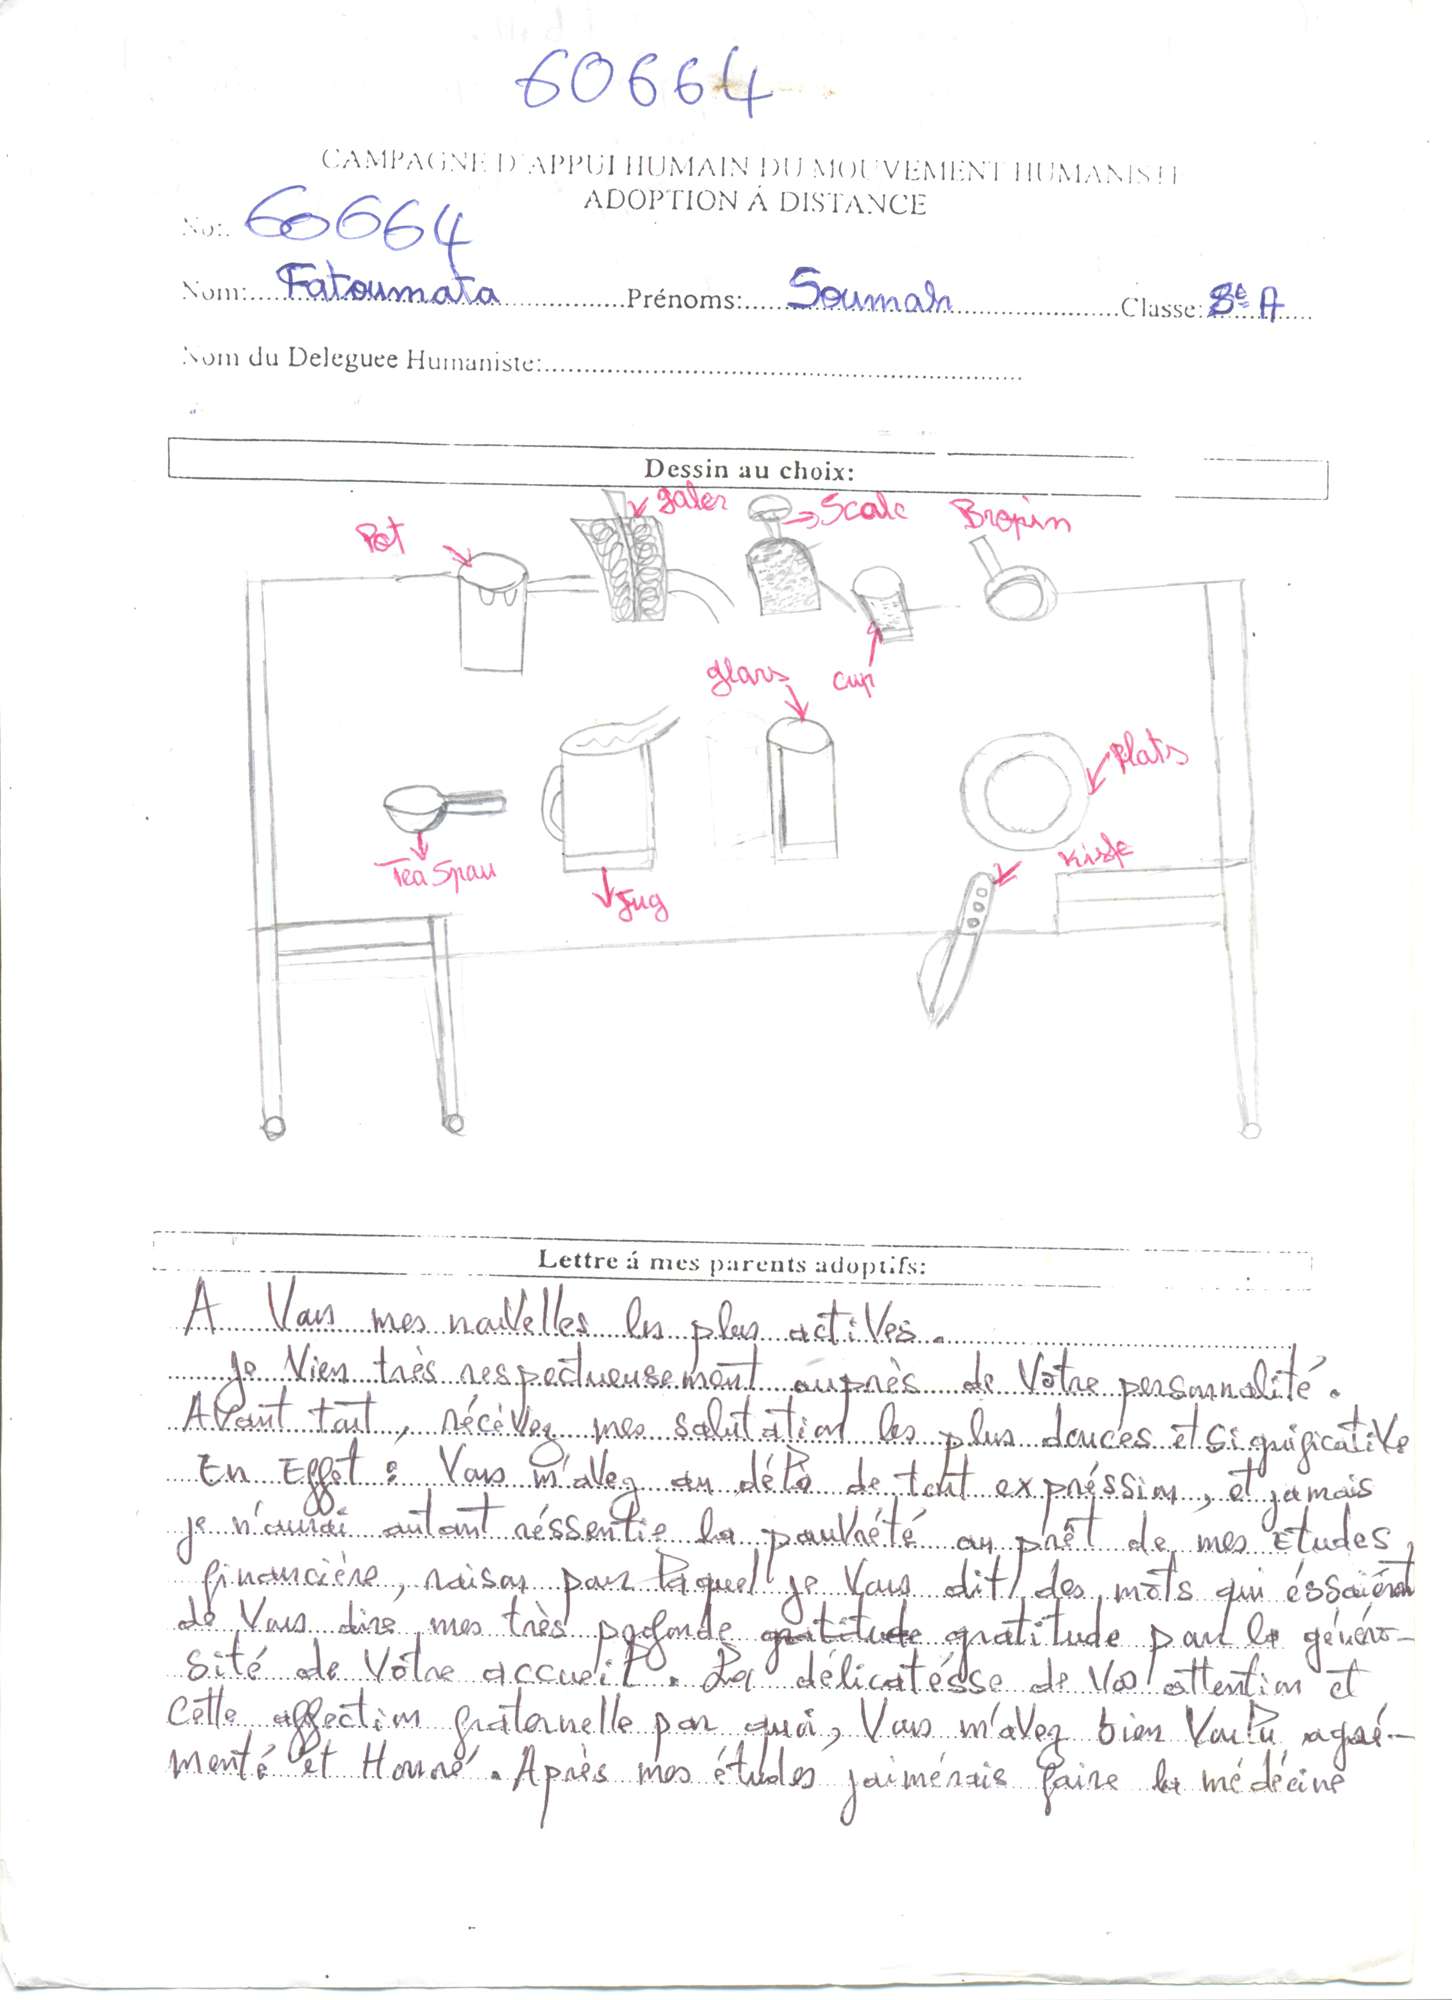 60664
CAMPAGNE D'APPUI HUMAIN DU MOUVEMENT HUMANISTE
ADOPTION Á DISTANCE
No:. 60664
Nom:....Fatoumata....Prénoms:....Soumah....Classe: 8e A
Nom du Deleguee Humaniste:....
Dessin au choix:
Pot
gater
Scale
Bropin
glans
cup
plats
Tea Spau
Jug
Kisfe
Lettre á mes parents adoptifs:
A Vous mes nouvelles les plus actives.
Je Vien très respectueusement auprès de Votre personnalité.
Avant tout, récévez mes salutation les plus douces et significative
En Effet : Vous m'avez au délà de tout expréssion, et jamais
je n'aurai autant réssentie la pauvrété au prêt de mes études
financière, raison pour laquel je vous dit des mots qui éssaiérent
de Vous dire mes très profonde gratitude gratitude pour la généro-
sité de Vôtre accueil. La délicatésse de Vos attention et
Cette affection fraternelle par quoi, Vous m'avez bien Voulu agré-
menté et Honoré. Après mes études j'aimérais faire la médécine